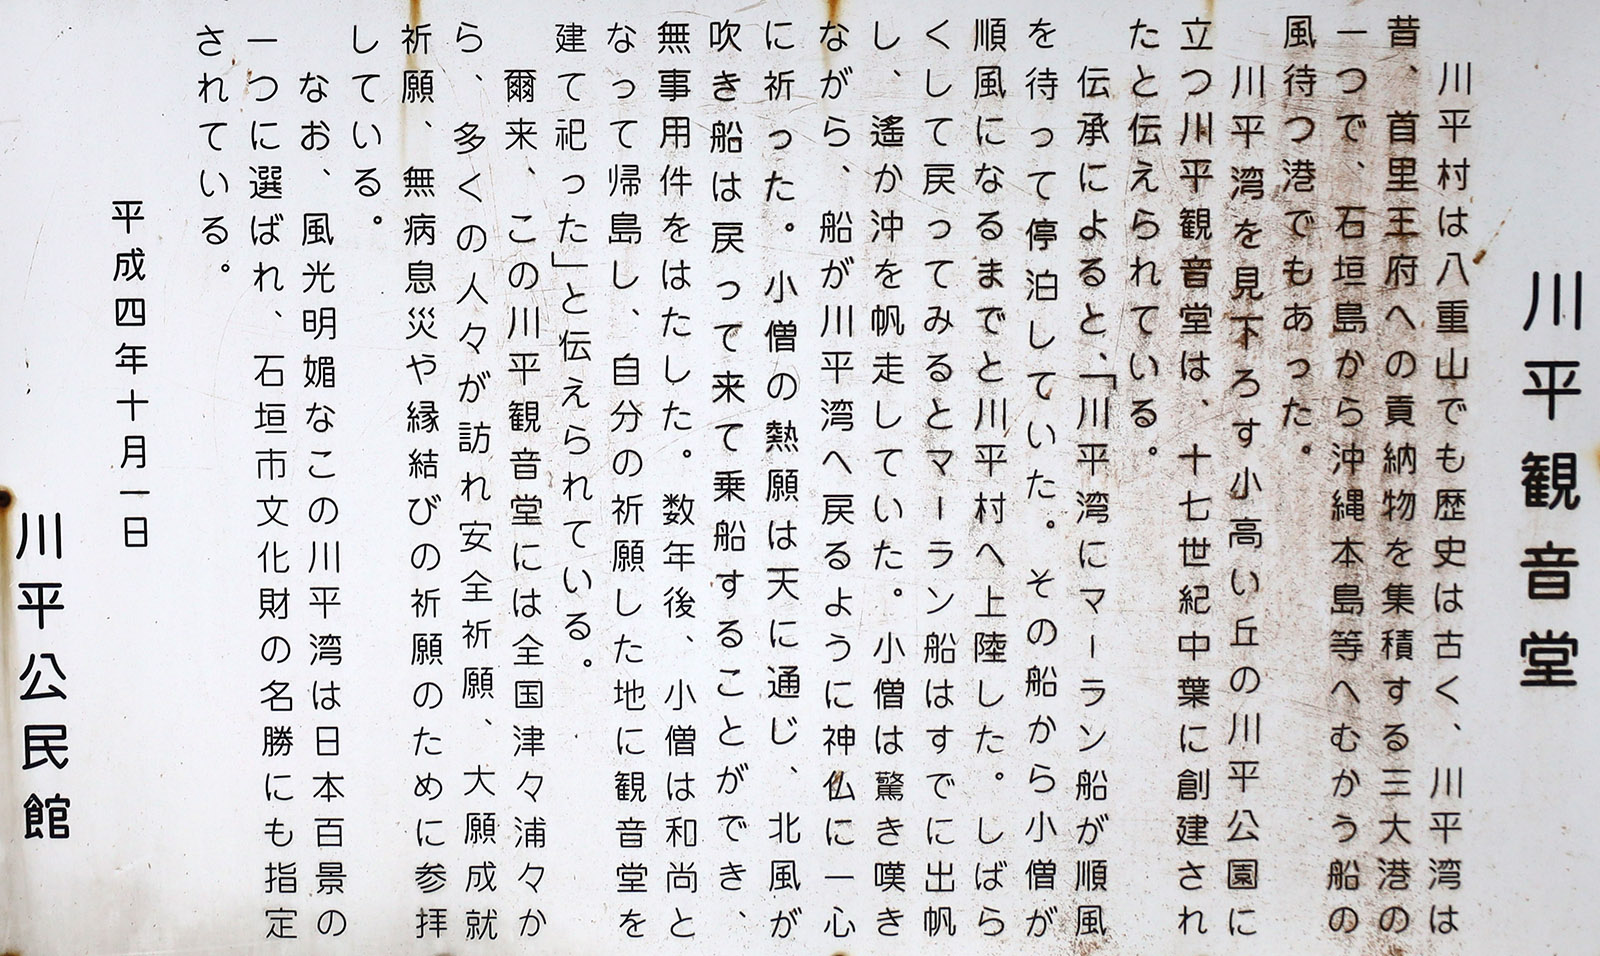 川平観音堂
川平村は八重山でも歴史は古く、川平湾は
昔、首里王府への貢納物を集積する三大港の
一つで、石垣島から沖縄本島等へむかう船の
風待つ港でもあった。
川平湾を見下ろす小高い丘の川平公園に
立つ川平観音堂は、十七世紀中葉に創建され
たと伝えられている。
伝承によると、「川平湾にマーラン船が順風
を待って停泊していた。その船から小僧が
順風になるまでと川平村へ上陸した。しばら
くして戻ってみるとマーラン船はすでに出帆
し、遙か沖を帆走していた。小僧は驚き嘆き
ながら、船が川平湾へ戻るように神仏に一心
に祈った。小僧の熱願は天に通じ、北風が
吹き船は戻って来て乗船することができ、
無事用件をはたした。数年後、小僧は和尚と
なって帰島し、自分の祈願した地に観音堂を
建て祀った」と伝えられている。
爾来、この川平観音堂には全国津々浦々か
ら、多くの人々が訪れ安全祈願、大願成就
祈願、無病息災や縁結びの祈願のために参拝
している。
なお、風光明媚なこの川平湾は日本百景の
一つに選ばれ、石垣市文化財の名勝にも指定
されている。
平成四年十月一日
川平公民館